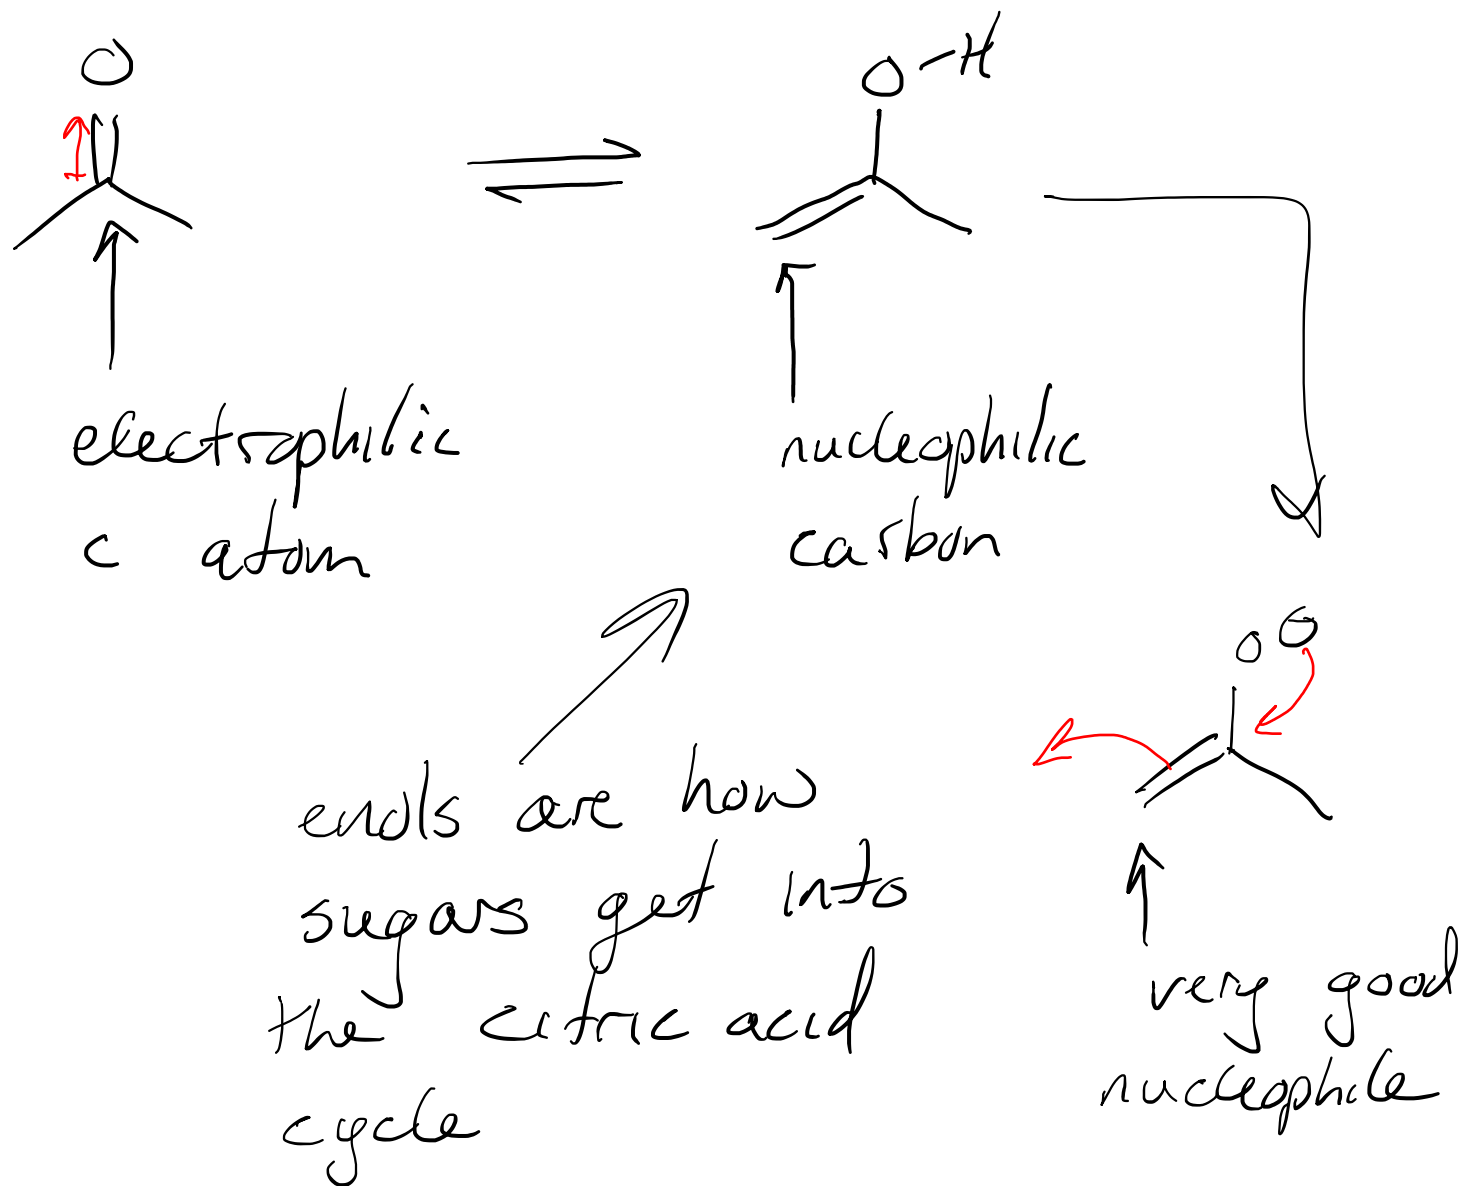 O
O-H
electrophilic
c atom
nucleophilic
carbon
O ⊖
enols are how
sugars get into
the citric acid
cycle
very good
nucleophile